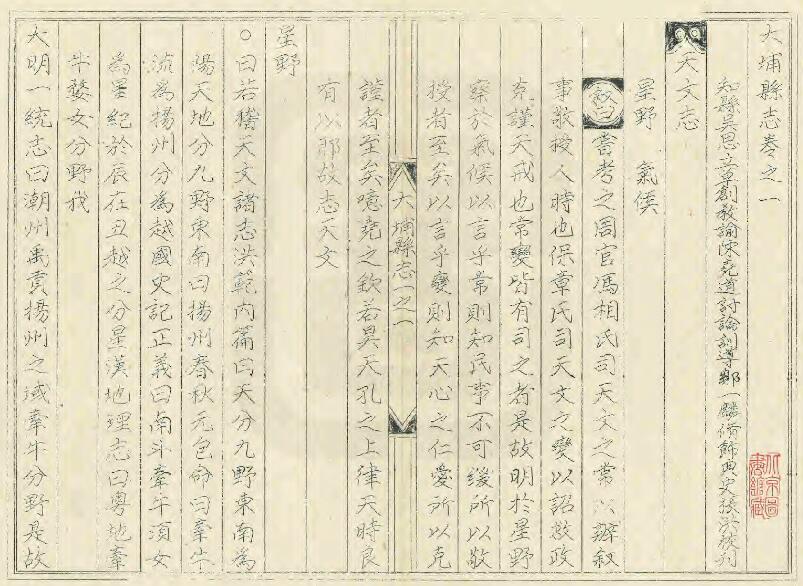 大埔縣志卷之一
知縣吳思立草創教諭陳堯道討論訓導鄒一麟脩飾典史張洪校刊
天文志
星野 氣候
敘曰嘗考之周官馮相氏司天文之常以辦叙
事敬授人時也保章氏司天文之變以詔救政
克謹天戒也常變皆有司之者是故明於星野
察於氣候以言乎常則知民事不可緩所以敬
授者至矣以言乎變則知天心之仁愛所以克
謹者至矣噫堯之欽若昊天孔之上律天時良
有以那故志天文
大埔縣志一之一
星野
○曰若稽天文諸志洪範內篇曰天分九野東南為
陽天地分九野東南曰揚州春秋元包命曰牽牛
流為揚州分為越國史記正義曰南斗牽牛須女
為星紀於辰在丑越之分星漢地理志曰粵地牽
牛婺女分野我
大明一統志曰潮州禹貢揚州之域牽牛分野是故